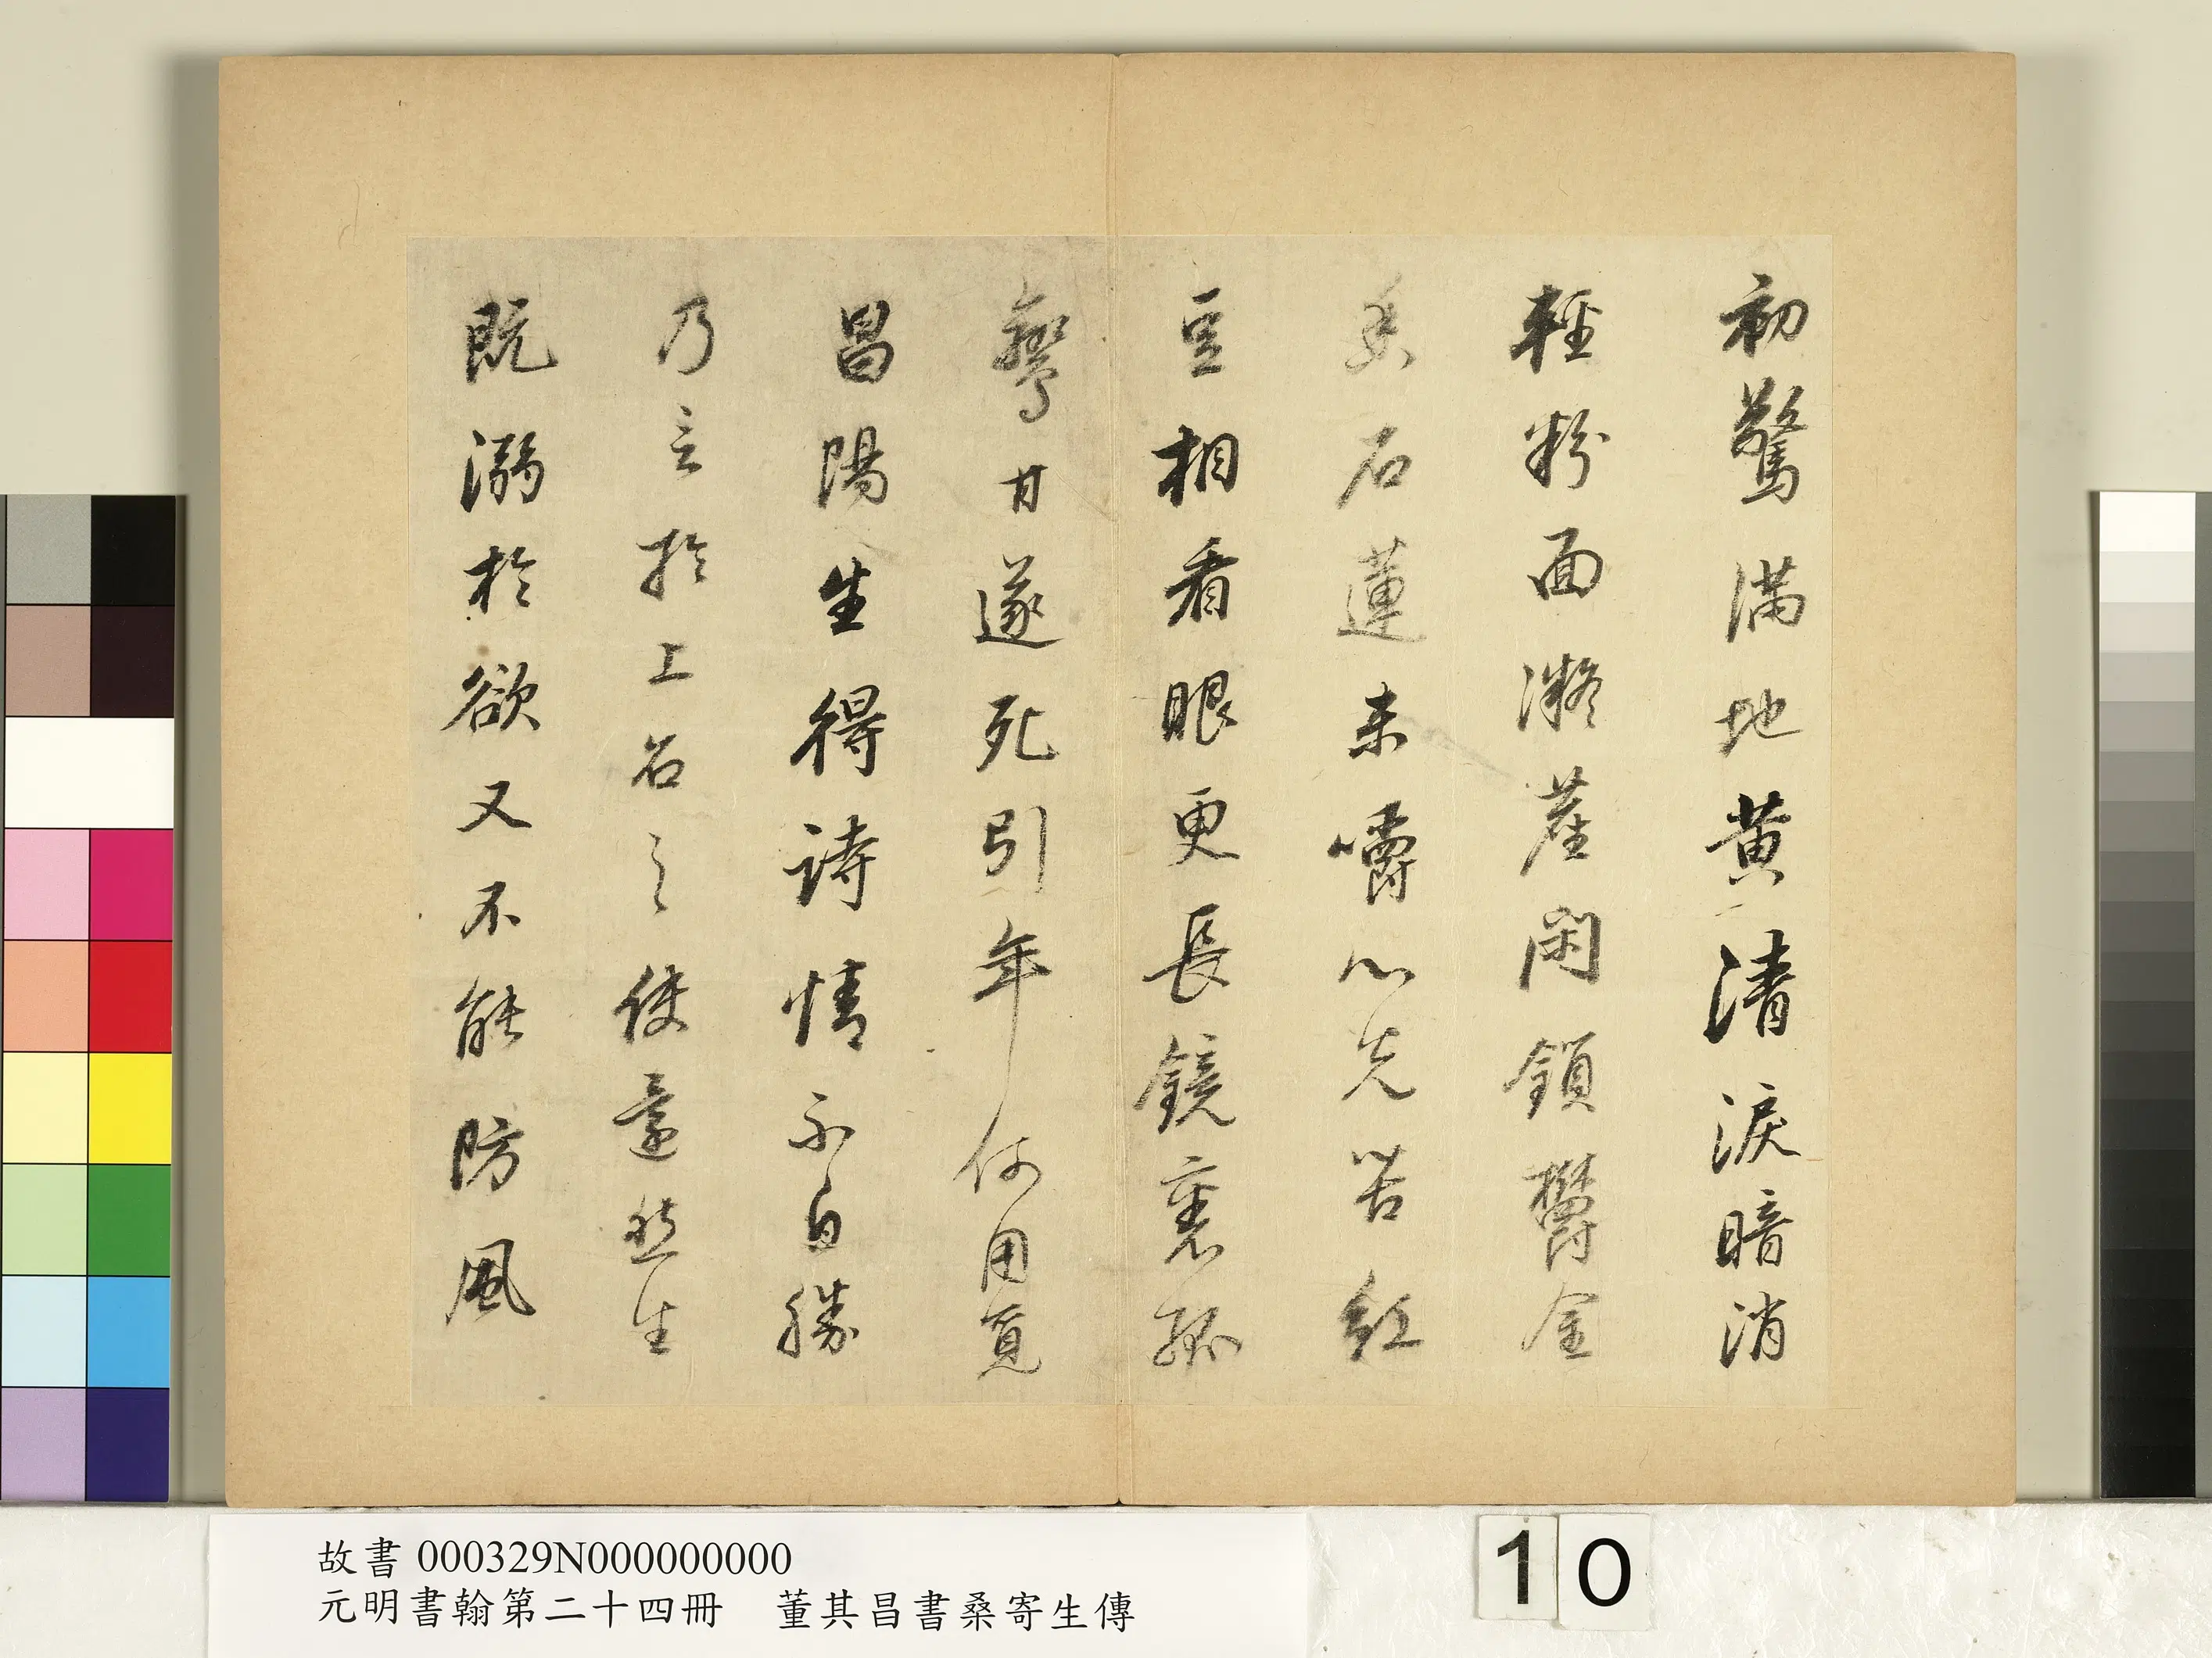 初驚滿地黄清淚暗消
輕粉面凝塵閑鎖鬱金
香石蓮未嚼心先苦紅
豆相看眼更長鏡裏孤
鸞甘遂死引年何用覓
昌陽生得詩情不自勝
乃言於上召之使還然生
既溺於欲又不能防風
故書 000329N000000000
元明書翰第二十四冊 董其昌書桑寄生傳
10